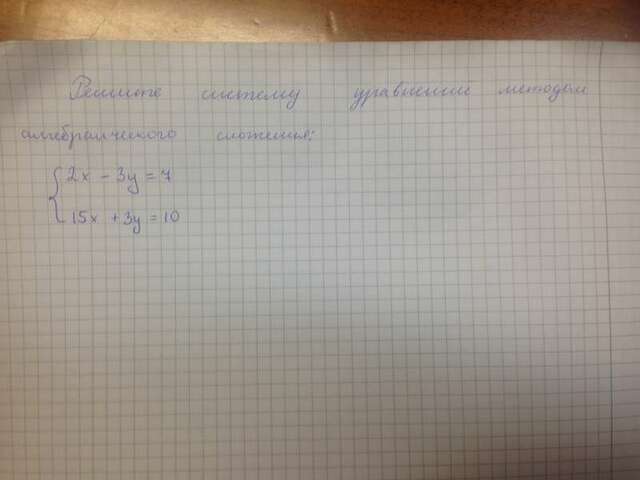 Решите систему уравнений методом
алгебраического сложения:
2x - 3y = 7
15x + 3y = 10